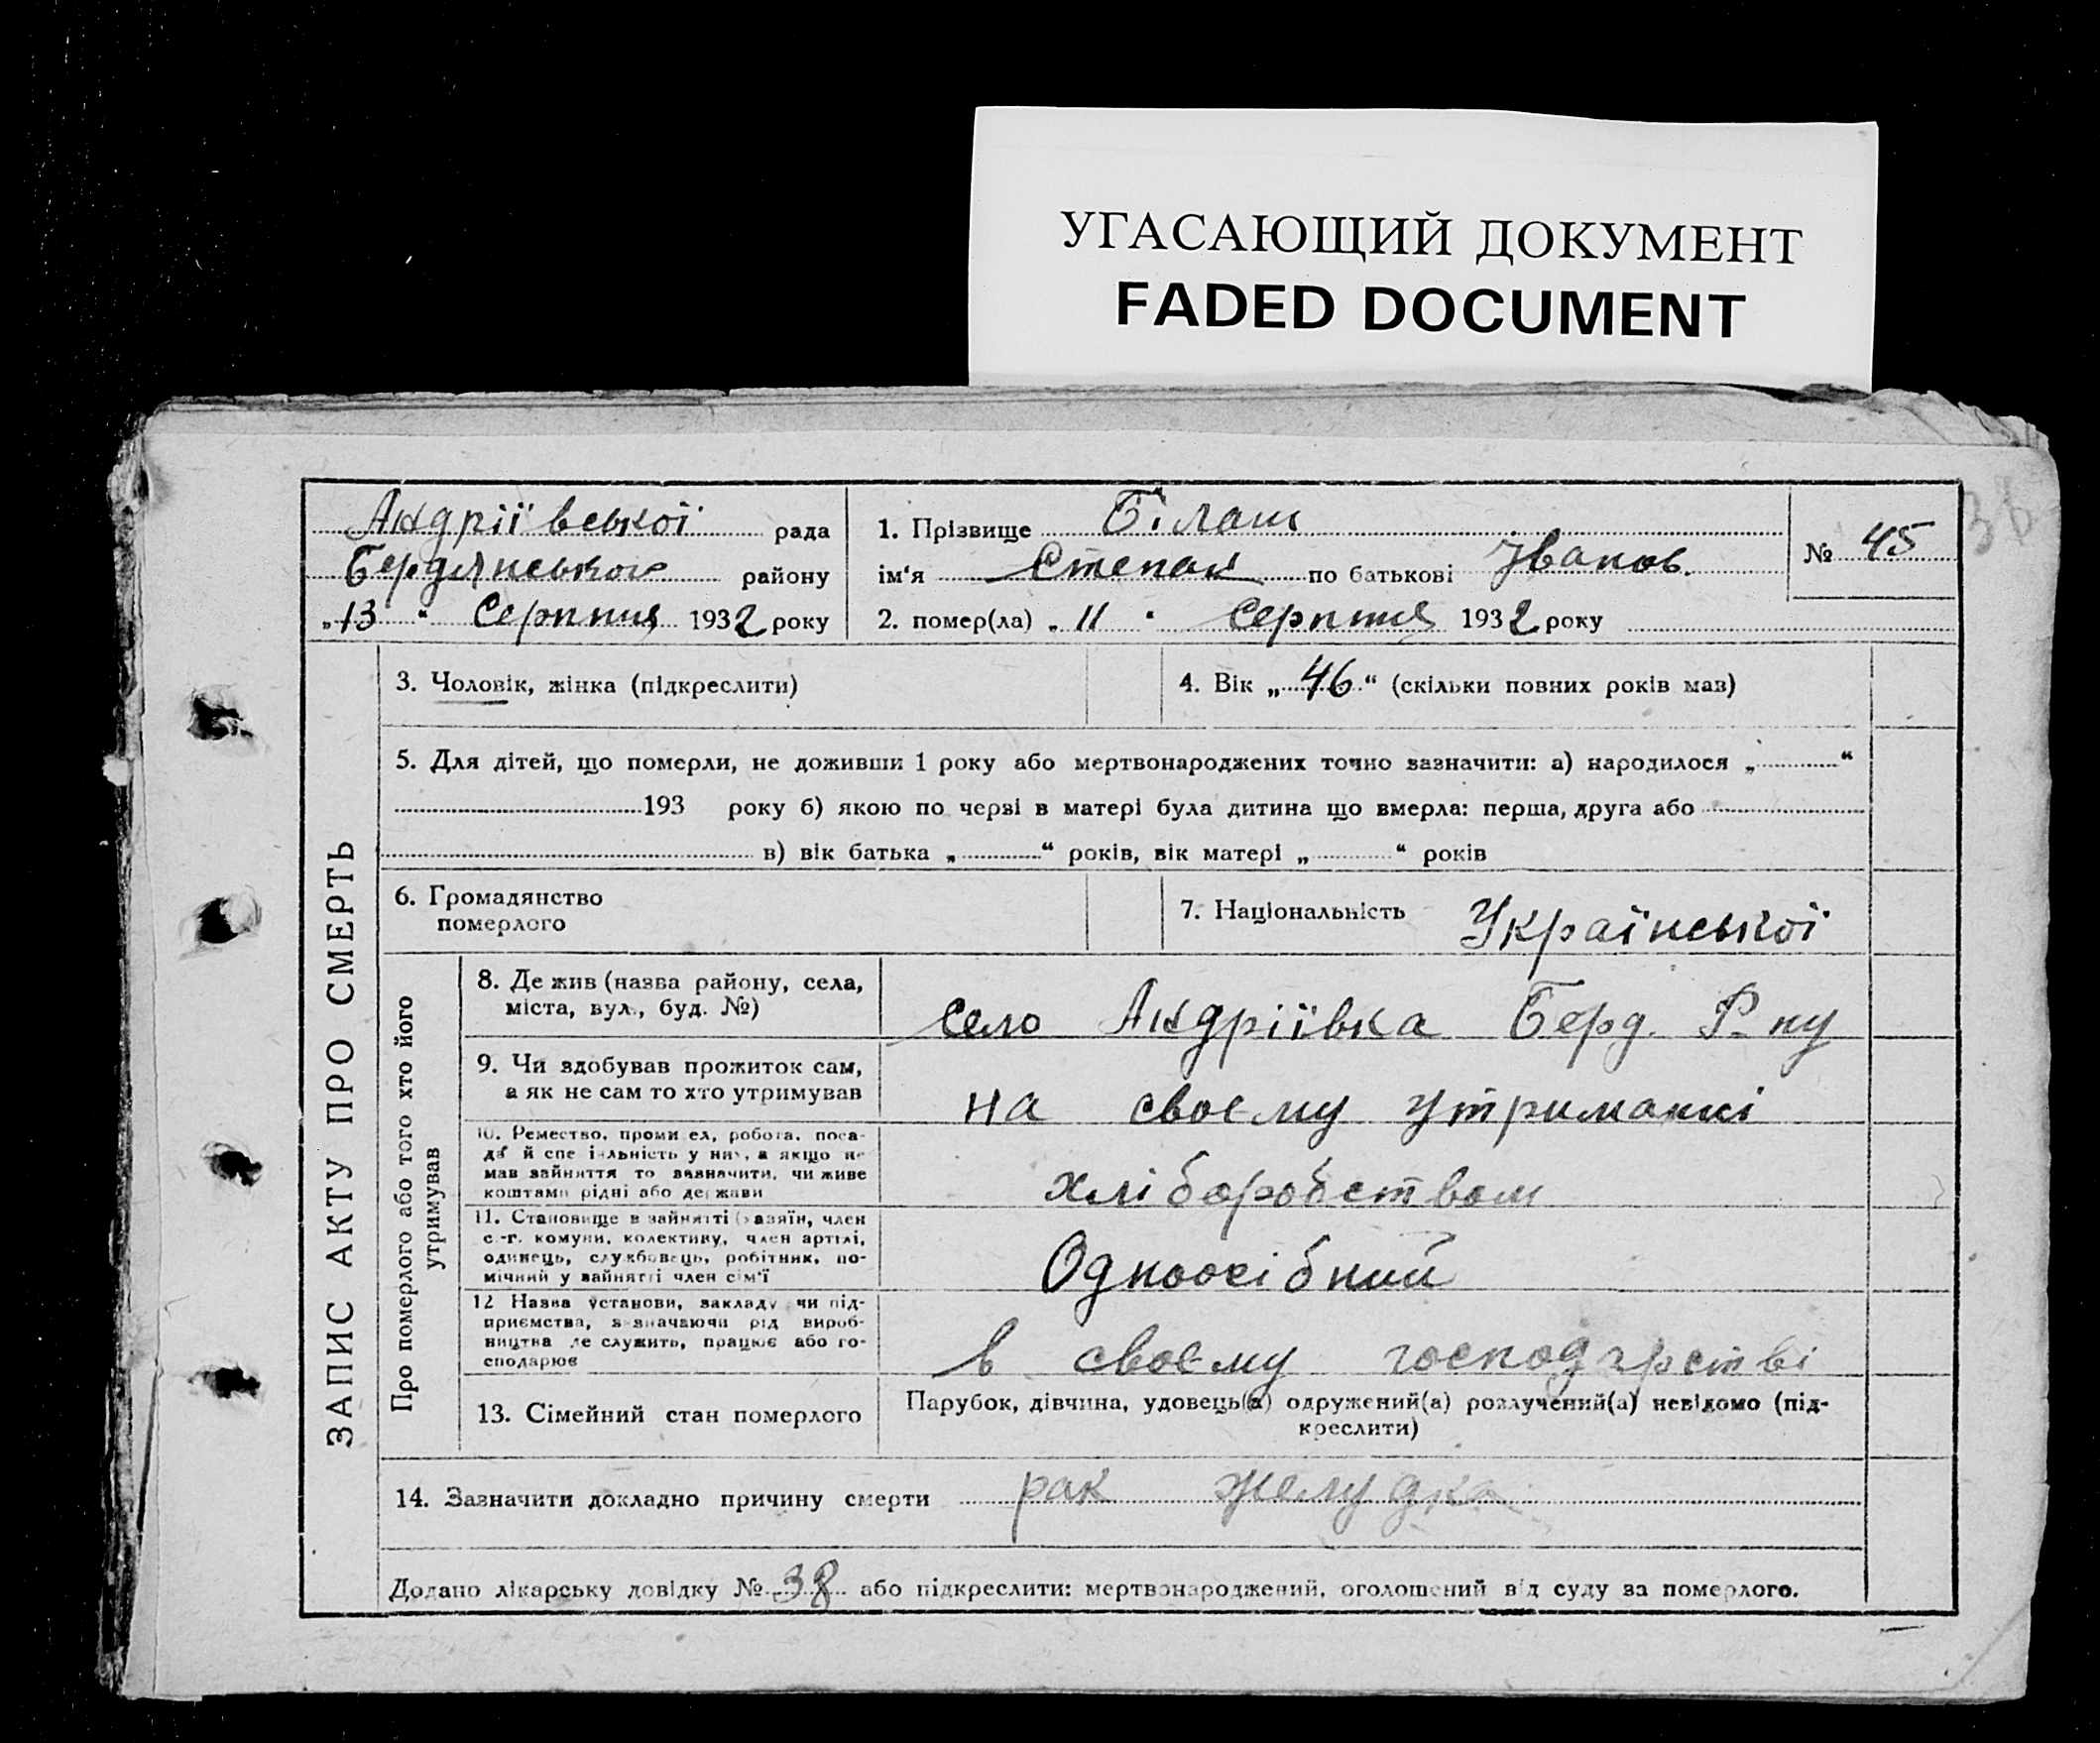 УГАСАЮЩИЙ ДОКУМЕНТ
FADED DOCUMENT
38
Андріївської рада
Бердянського району
„13“ Серпня 1932 року
1. Прізвище Білаш
ім‘я Степан по батькові Іванов.
2. помер(ла) „11“ Серпня 1932 року
№ 45
ЗАПИС АКТУ ПРО СМЕРТЬ
3. Чоловік, жінка (підкреслити)
4. Вік „46“ (скільки повних років мав)
5. Для дітей, що померли, не доживши 1 року або мертвонароджених точно зазначити: а) народилося „ “
193 року б) якою по черзі в матері була дитина що вмерла: перша, друга або
в) вік батька „ “ років, вік матері „ “ років
6. Громадянство
померлого
7. Національність Української
Про померлого або того хто його
утримував
8. Де жив (назва району, села,
міста, вул., буд. №)
село Андріївка Берд. Р-ну
9. Чи здобував прожиток сам,
а як не сам то хто утримував
на своєму утриманні
10. Ремество, промисел, робота, поса-
да й спеціальність у них, а якщо не
мав зайняття то зазначити, чи живе
коштами рідні або держави
хліборобством
11. Становище в зайнятті (хазяїн, член
с.-г. комуни, колективу, член артілі,
одинець, службовець, робітник, по-
мічний у зайнятті член сім‘ї
Одноосібний
12 Назва установи, закладу чи під-
приємства, зазначаючи рід вироб-
ництва де служить, працює або го-
сподарює
в своєму господарстві
13. Сімейний стан померлого
Парубок, дівчина, удовець(а) одружений(а) розлучений(а) невідомо (під-
креслити)
14. Зазначити докладно причину смерти рак желудка
Додано лікарську довідку № 38 або підкреслити: мертвонароджений, оголошений від суду за померлого.